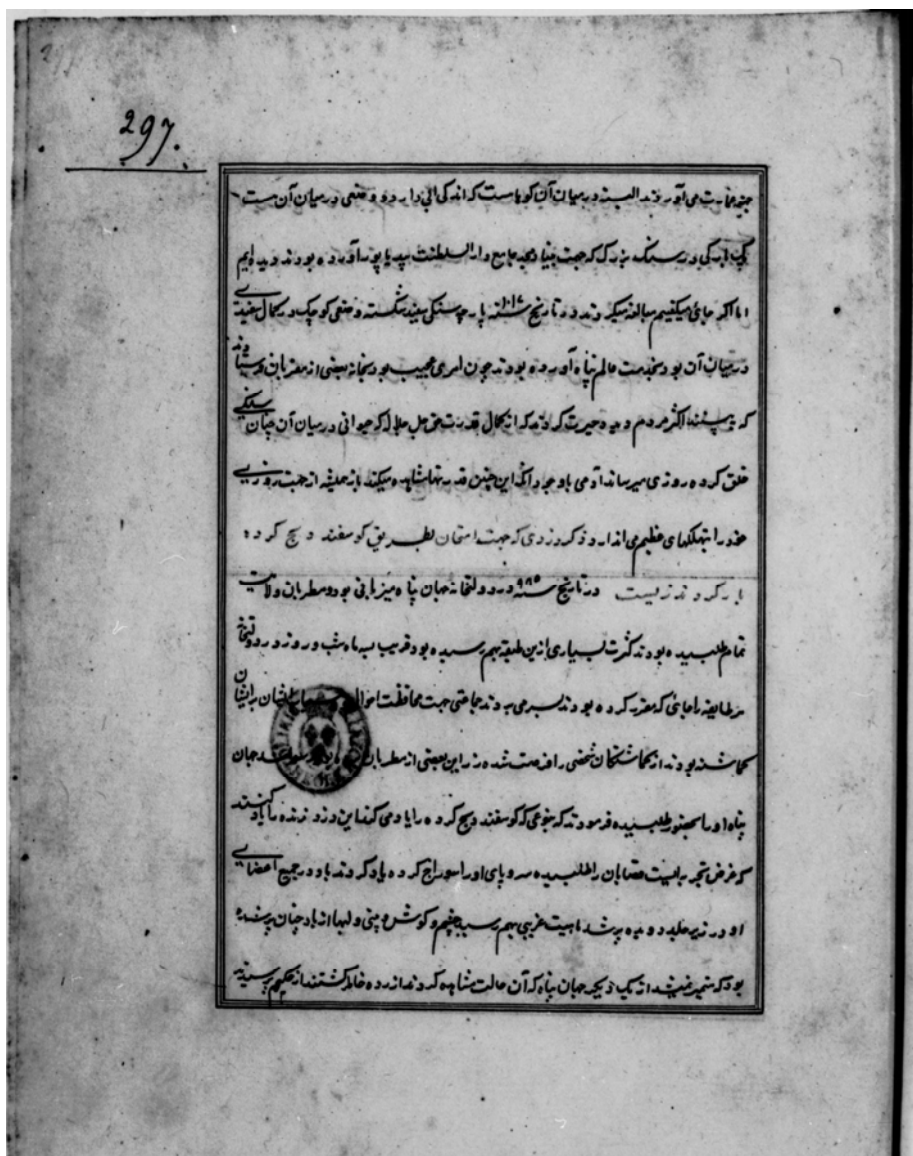 297.
می آورند البته در میان آن کویها ست که اندکی آبی دارد و ضفدعی در میان آن هست
بزرک که جهت بنیاد مسجد جامع دار السلطنت بیدیاپور آورده بودند دیدایم
اما اکر جای میکفتیم مبالغه میکردند در تاریخ سنه ۱۰۱۷ پارچه سنکی سفید شکسته ضفدعی کوچک در کمال سفیدی
در میان آن بود بخدمت عالم پناه آورده بودند چون امری عجیب بود بخانه بعضی از مقربان فرستادند
که ببینند اکثر مردم دیده حیرت کردند که از کمال قدرت حق جل جلاله که حیوانی در میان آن چنان سنکی
خلق کرده روزی میرساند آدمی باوجود آنکه این چنین قدرتها مشاهده میکند باز همیشه از جهت روزی
خود را بتهلکهای عظیم می اندازد ذکر دزدی که جهت امتحان بطریق کوسفند ذبح کرده
باد کردند نزیست در تاریخ سنه ۹۸۵ در دولتخانه جهان پناه میزبانی بود و مطربان ولایت
تمام طلبیده بودند کثرت بسیاری ازین طبقه بهم رسیده بود قریب سه ماه شب و روز در دولتخانه
هر طایفه را جای که مقرر کرده بودند بسر می بردند جماعتی جهت محافظت ایشان بر ایشان
کماشته بودند از کماشتکان شخصی را فرصت شده بعضی از مطربان جهان
پناه او را بحضور طلبیده فرمودند که بنوعی که کوسفند ذبح کرده را باد می کنند این دزد زنده را باد کنند
که غرض تجربه ایست قصابان را طلبیده سر و پای او را سوراخ کرده باد کردند باد در جمیع اعضای
او در زیر جلد دویده پر شد ماهیت غریبی بهم رسید چشم و کوش و بینی و لبها از باد چنان پر شده
بود که تمیز نمیشد از یک دیکر جهان پناه که آن حالت مشاهده کردند آزرده خاطر کشتند از حکیم پرسیدند